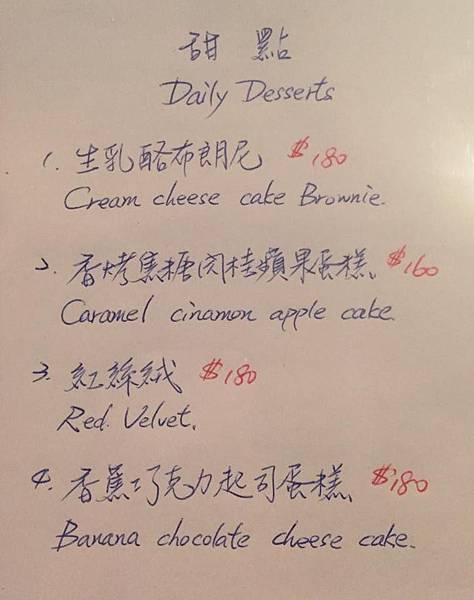 甜點
Daily Desserts
1. 生乳酪布朗尼 $180
Cream cheese cake Brownie.
2. 香烤焦糖肉桂蘋果蛋糕. $160
Caramel cinamon apple cake.
3. 紅絲絨 $180
Red Velvet.
4. 香蕉巧克力起司蛋糕. $180
Banana chocolate cheese cake.